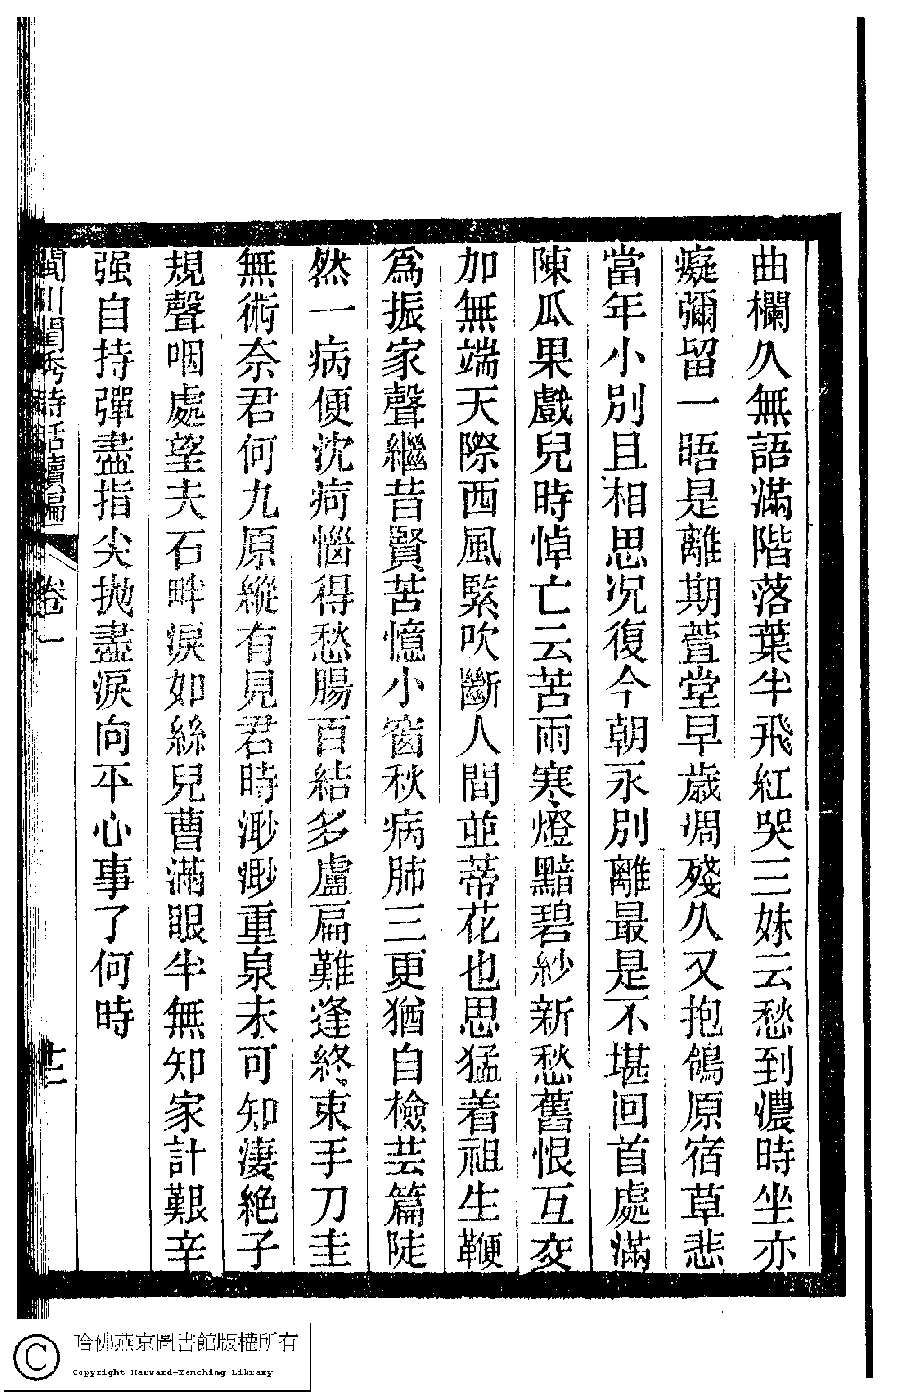 曲欄久無語滿階落葉半飛紅哭三妹云愁到濃時坐亦
癡彌留一晤是離期萱堂早歲凋殘久又抱鴒原宿草悲
當年小別且相思况復今朝永別離最是不堪回首處滿
陳瓜果戲兒時悼亡云苦雨寒燈黯碧紗新愁舊恨互交
加無端天際西風緊吹斷人間並蒂花也思猛着祖生鞭
爲振家聲繼昔賢苦憶小窗秋病肺三更猶自檢芸篇陡
然一病便沈疴惱得愁腸百結多盧扁難逢終束手刀圭
無術奈君何九原縱有見君時渺渺重泉未可知凄絕子
規聲咽處望夫石畔淚如絲兒曹滿眼半無知家計艱辛
强自持彈盡指尖拋盡淚向平心事了何時
閩川閨秀詩話續編 卷一 廿一
哈佛燕京圖書館版權所有
Copyright Harvard-Yenching Library